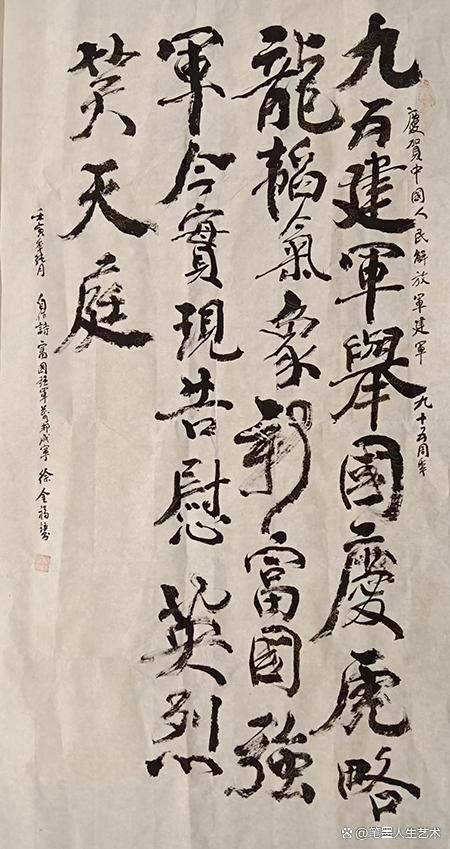 慶賀中國人民解放軍建軍九十五周年
九五建軍舉國慶虎略
龍韜氣象新富國強
軍今實現告慰英烈
笑天庭
壬寅年 月 自作詩富國強軍 咸寧 徐金福書
@笔墨人生艺术